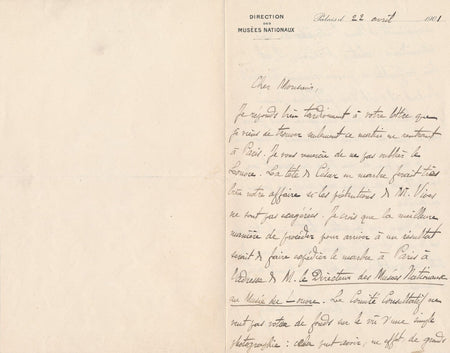 DIRECTION
DES
MUSÉES NATIONAUX
22 avril 1901
Cher Monsieur,
Je réponds bien tardivement à votre lettre que
je viens de trouver seulement ce matin en rentrant
à Paris. Je vous remercie de ne pas oublier le
Louvre. La tête de César en marbre ferait très
bien notre affaire si les prétentions de M. Vives
ne sont pas exagérées. Je crois que la meilleure
manière de procéder pour arriver à un résultat
serait de faire expédier le marbre à Paris à
l'adresse de M. le Directeur des Musées Nationaux
au Musée du Louvre. Le Comité Consultatif ne
veut pas voter de fonds sur le vu d'une simple
photographie : peut avoir, en effet, de grands